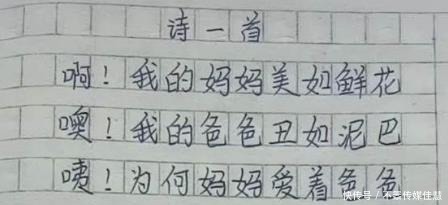 诗一首
啊！我的妈妈美如鲜花
噢！我的色色丑如泥巴
咦！为何妈妈爱着色色
快传号 / 传媒佳慧